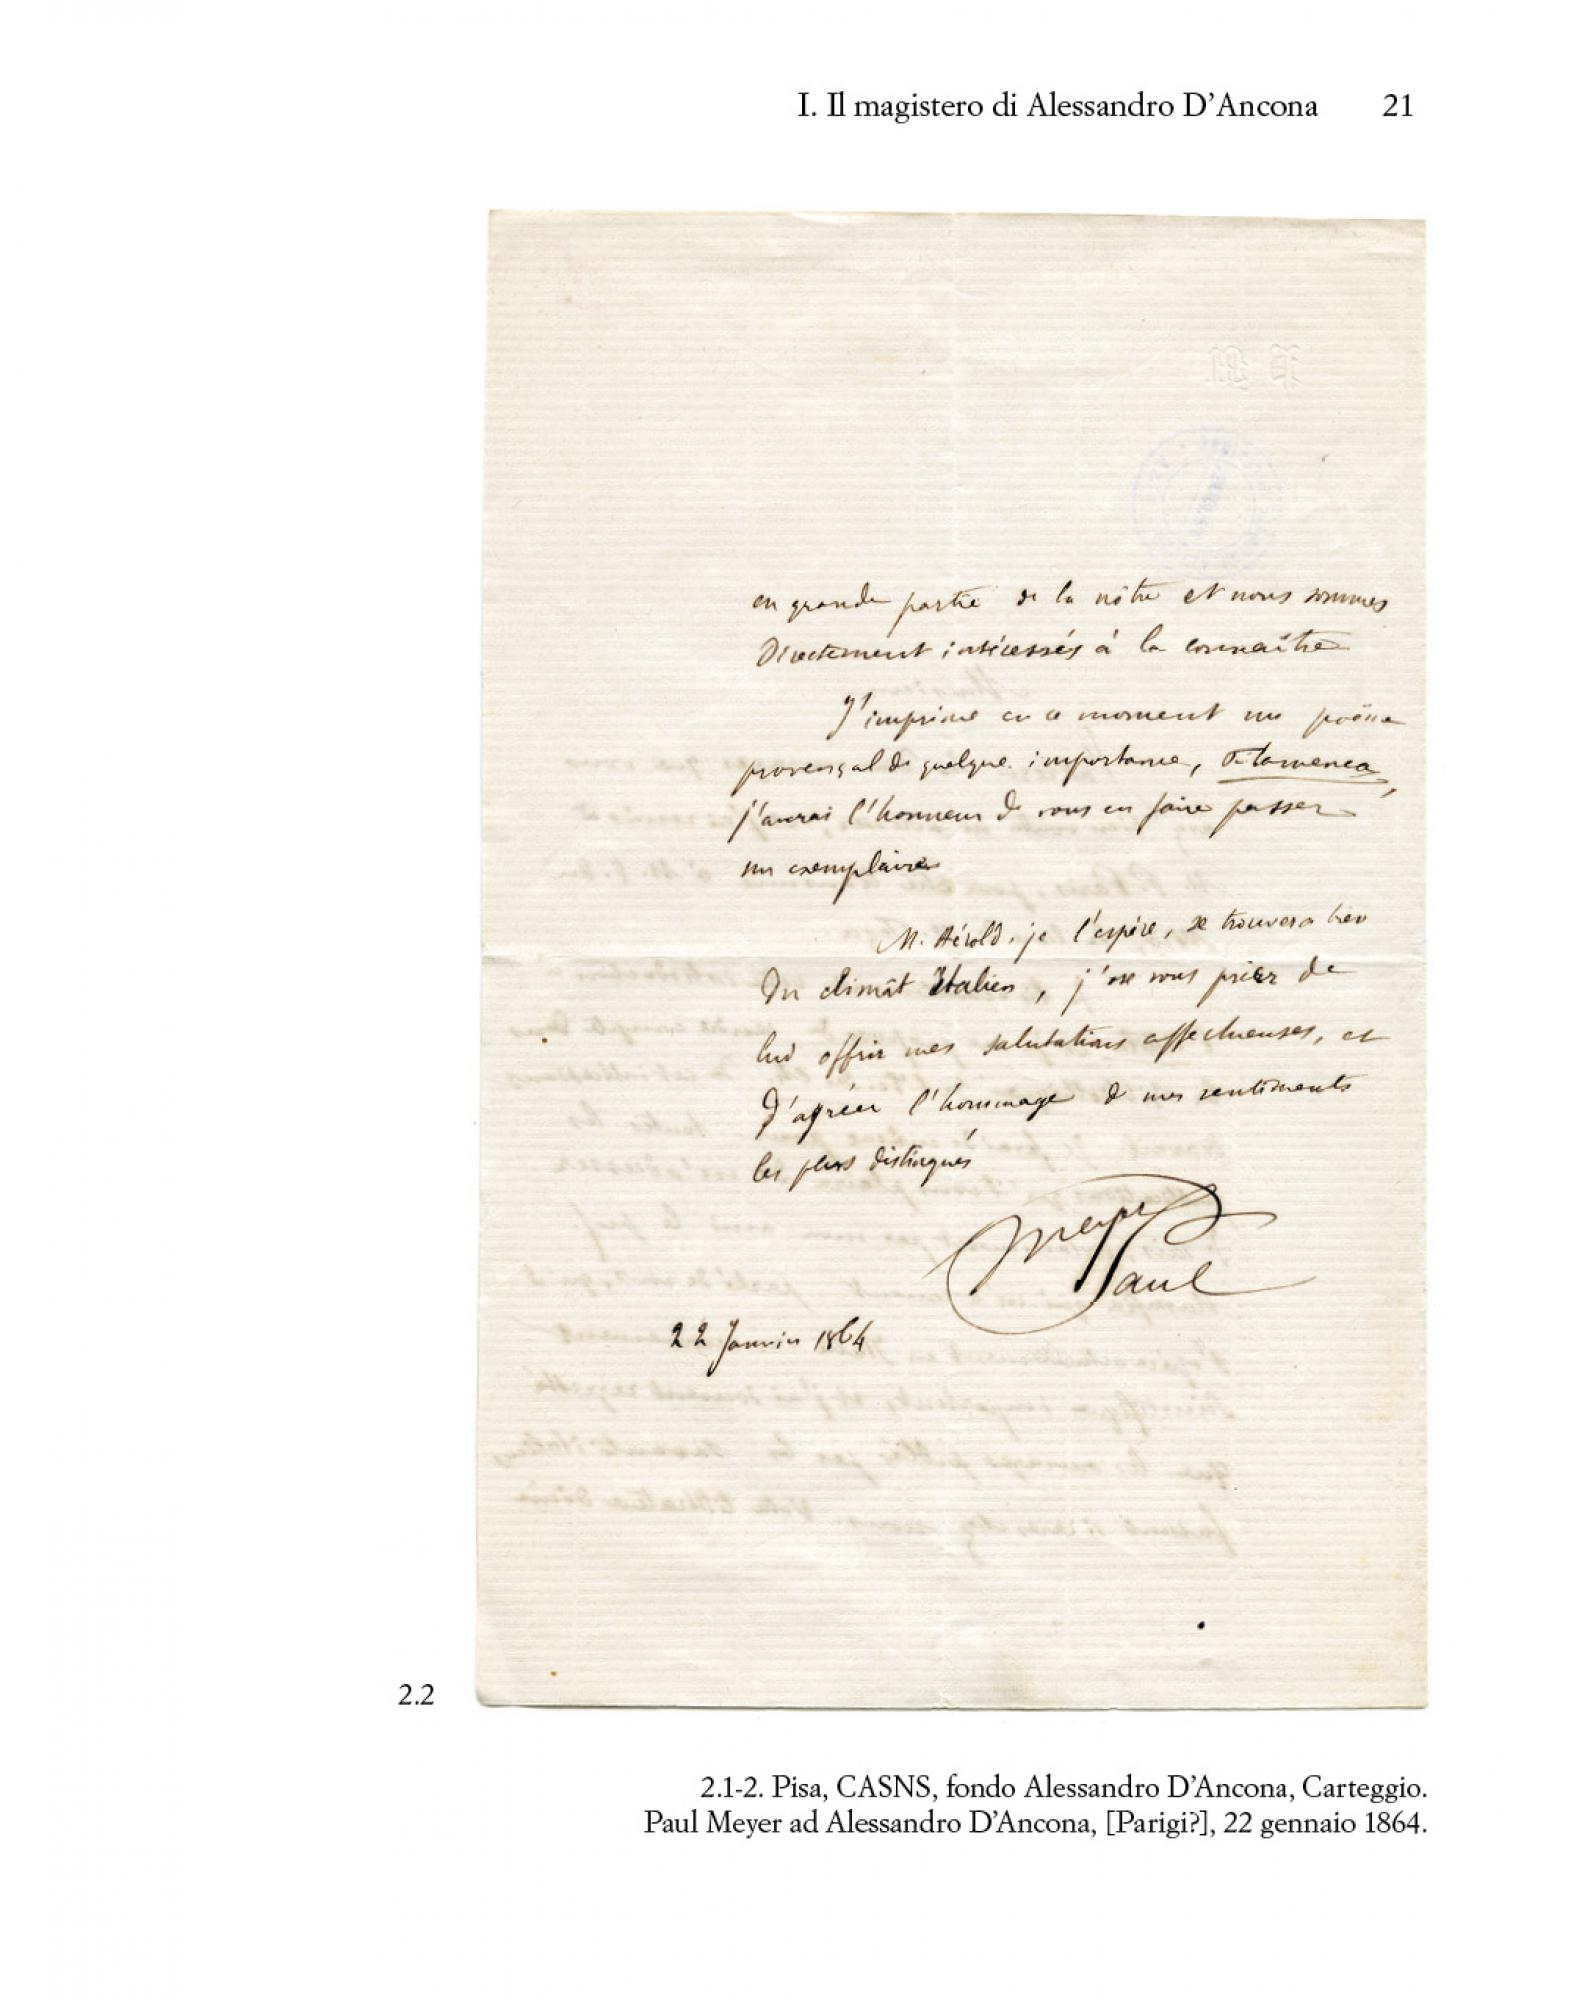 I. Il magistero di Alessandro D'Ancona 21
en grande partie de la nôtre et nous sommes
Directement intéressés à la connaître
J'imprime en ce moment un poëme
provençal de quelque importance, Flamenca,
j'aurai l'honneur de vous en faire passer
un exemplaire
M. Hérold, je l'espère, se trouvera bien
Du climât Italien, j'ose vous prier de
lui offrir mes salutations affectueuses, et
D'agréer l'hommage de mes sentiments
les plus distingués
Meyer
Paul
22 Janvier 1864
2.2
2.1-2. Pisa, CASNS, fondo Alessandro D'Ancona, Carteggio.
Paul Meyer ad Alessandro D'Ancona, [Parigi?], 22 gennaio 1864.